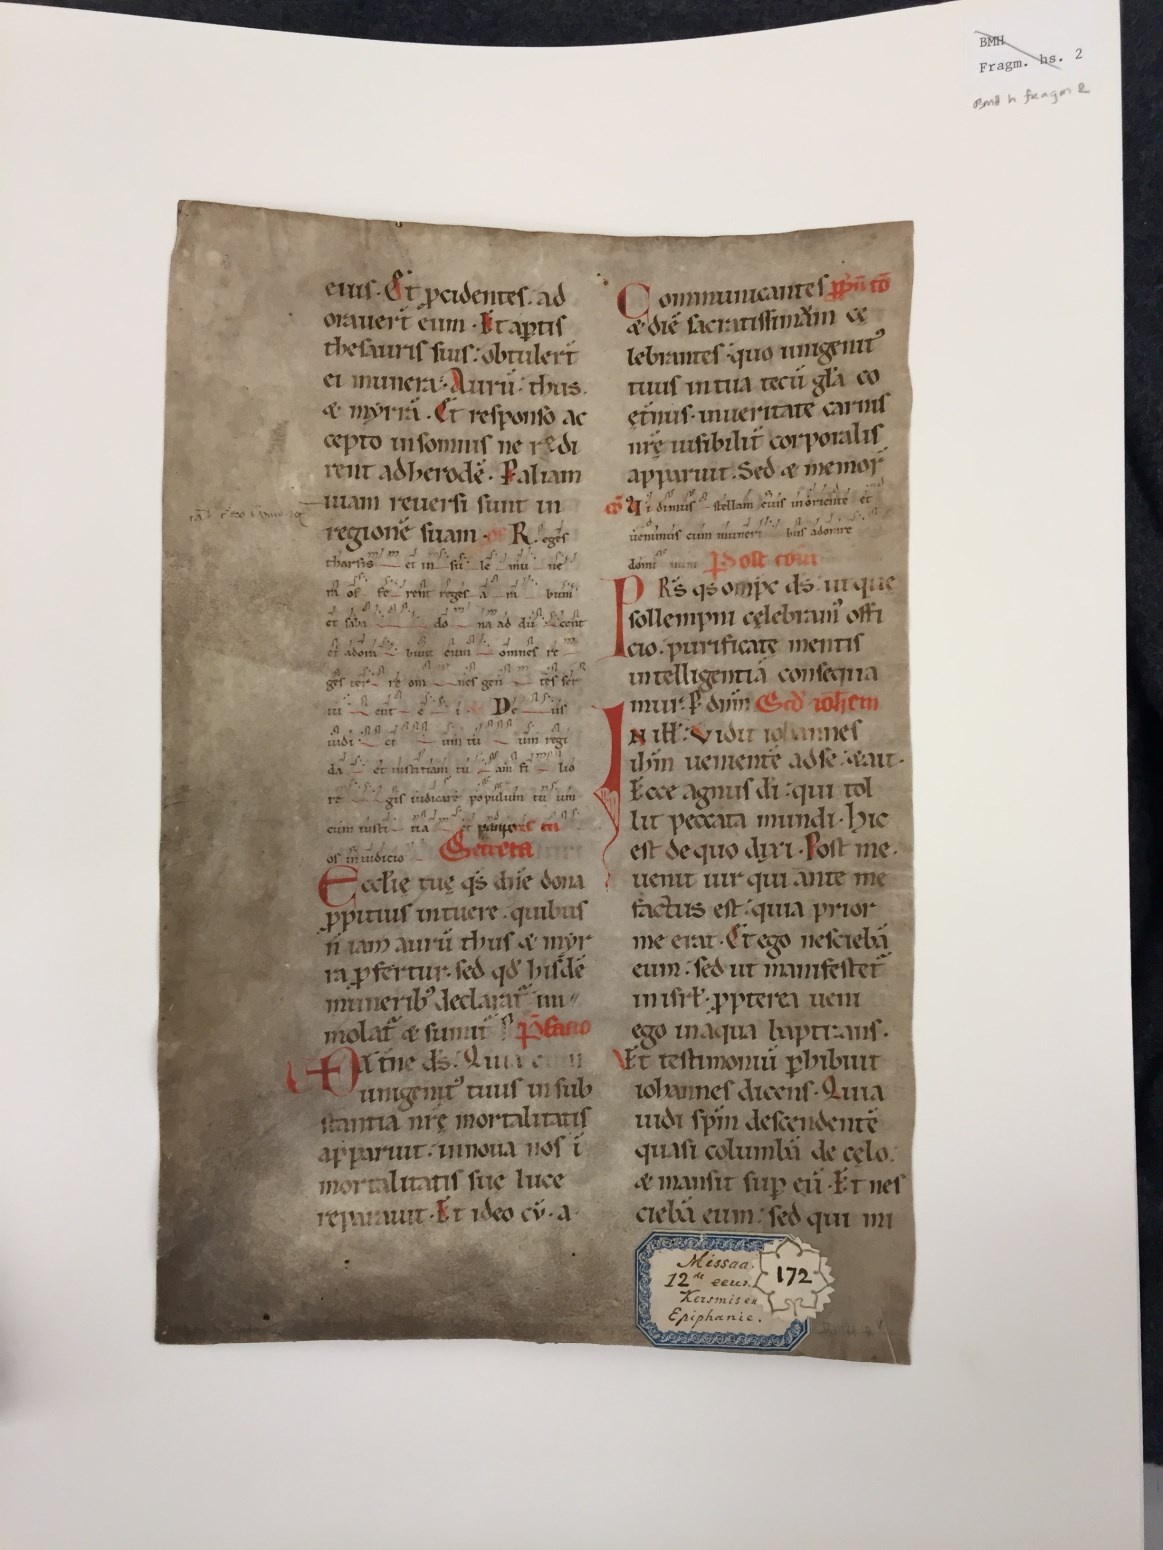 BMH
Fragm. hs. 2
BMH h fragm 2
eius. Et ꝓcidentes. ad
orauert̄ eum. Et aꝑtis
thesauris suis: obtulert̄
ei munera. Aurū. thus.
& myrrā. Et responso ac
cepto in somnis ne redi
rent ad herodē. Per aliam
uiam reuersi sunt in
regionē suam. of R eges
tharsis et in su le mu ne
ra of fe rent reges a ra bum
et saba do na ad du cent
et adora bunt eum omnes re
ges ter re om nes gen tes ser
ui ent e i. De us
iudi ci um tu um regi
da et iusticiam tu am fi lio
re gis iudicare populum tu um
cum iusti tia et pauperes tu
os in iudicio Secreta
Ecclie tuę qs dñe dona
ꝓpitius intuere. quibus
ñ iam aurū thus & myr
ra ꝓfertur. sed qd hisdē
munerib; declarat̃ im
molat̃ & sumit̃ P̃fatio
unigenit᾽ tuus in sub
stantia nrę mortalitatis
apparuit. in noua nos ī
mortalitatis suę luce
reparauit. Et ideo cū. a
Communicantes
& diē sacratissimam ce
lebrantes. quo unigenit᾽
tuus in tua tecū gl̄a co
ęt̄nus. in ueritate carnis
nrę uisibilit̃ corporalis
apparuit. Sed & memor̃
cō Vi dimus stellam eius in oriente et
uenimus cum muneri bus adorare
domi num Post com̄
PRs qs omp̄c ds. ut que
sollempni cęlebram᾽ offi
cio. purificate mentis
intelligentiā consequa
mur. P dnm Scd iohem
IN ill. Vidit iohannes
ihm uenientē ad se. & ait.
Ecce agnus di: qui tol
lit peccata mundi. hic
est de quo dixi. Post me.
uenit uir qui ante me
factus est: quia prior
me erat. Et ego nesciebā
eum: sed ut manifestet̃
in isrl. ꝓpterea ueni
ego in aqua baptizans.
Et testimoniū ꝑhibuit
iohannes dicens. Quia
uidi spm descendentē
quasi columbā de cęlo.
& mansit sup eū. Et nes
ciebā eum: sed qui mi
Missaal
12de eeuw.
Kersmis en
Epiphanie.
172